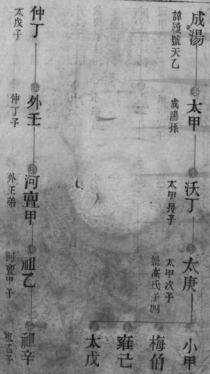 成湯
諱履號天乙
太甲
成湯孫
沃丁
太甲長子
太庚
太甲次子
高氏子四
小甲
梅伯
雍己
太戊
仲丁
太戊子
外壬
仲丁子
河亶甲
外壬弟
祖乙
河亶甲子
祖辛
祖乙子